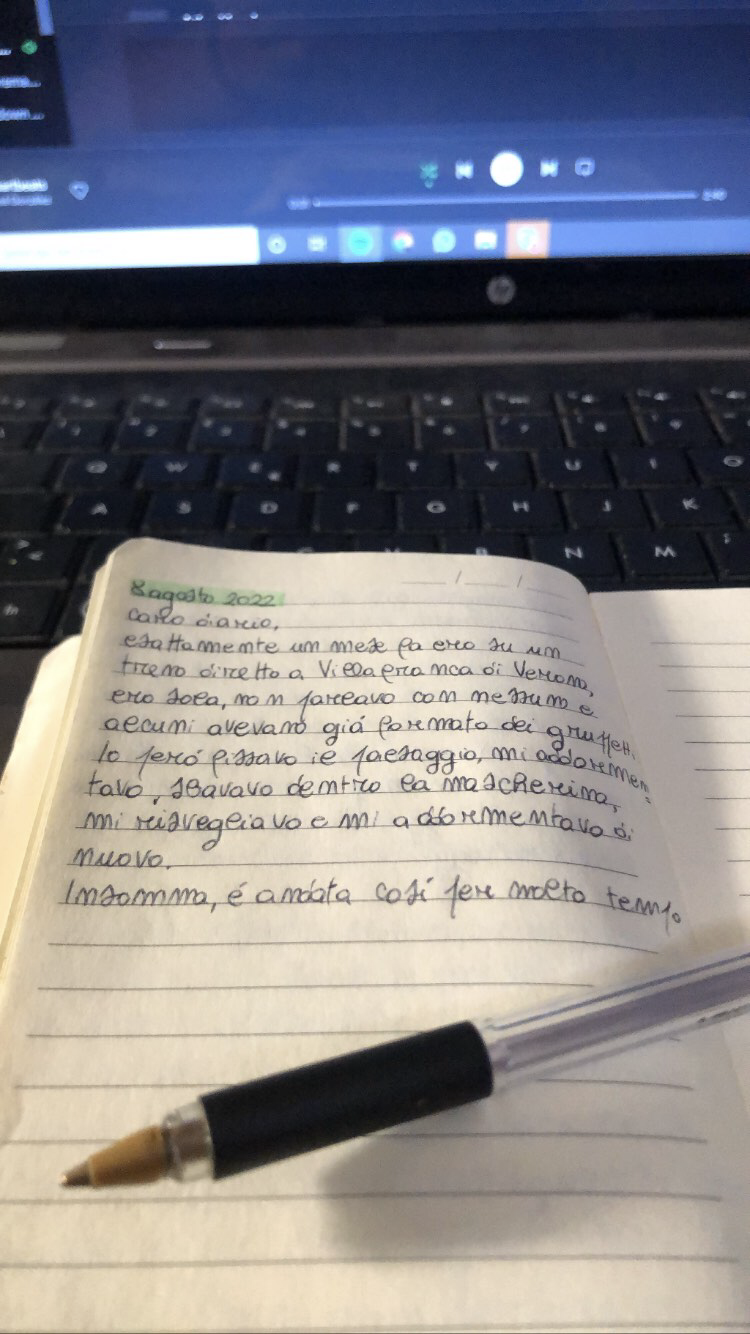 8 agosto 2022
caro diario,
esattamente un mese fa ero su un
treno diretto a Villafranca di Verona,
ero sola, non parlavo con nessuno e
alcuni avevano giá formato dei gruppett.
Io peró fissavo il paesaggio, mi addormen
tavo, sbavavo dentro la mascherina,
mi risvegliavo e mi addormentavo di
nuovo.
Insomma, é andata così per molto tempo
Q W E R T Y U I O
A S D F G H J K
N M
hp